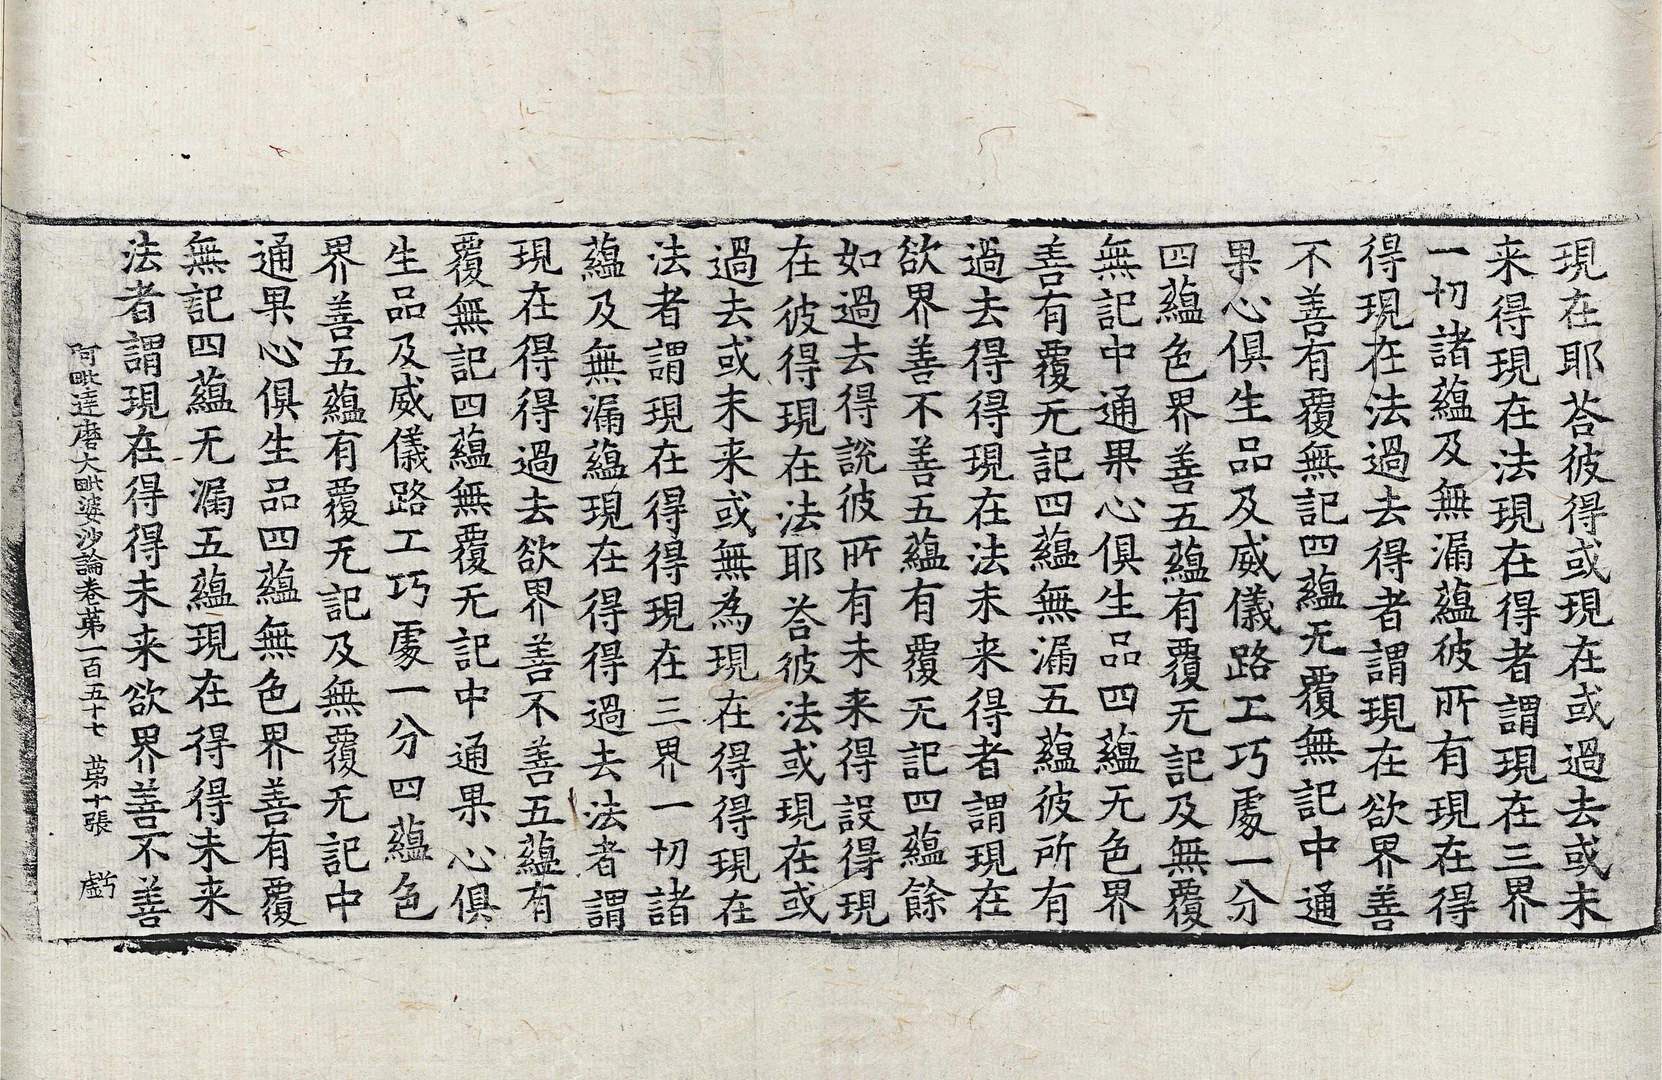 現在耶荅彼得或現在或過去或未
来得現在法現在得者謂現在三界
一切諸蘊及無漏蘊彼所有現在得
得現在法過去得者謂現在欲界善
不善有覆無記四蘊无覆無記中通
果心俱生品及威儀路工巧處一分
四蘊色界善五蘊有覆无記及無覆
無記中通果心俱生品四蘊无色界
善有覆无記四蘊無漏五蘊彼所有
過去得得現在法未来得者謂現在
欲界善不善五蘊有覆无記四蘊餘
如過去得說彼所有未来得設得現
在彼得現在法耶荅彼法或現在或
過去或未来或無為現在得得現在
法者謂現在得得現在三界一切諸
蘊及無漏蘊現在得得過去法者謂
現在得得過去欲界善不善五蘊有
覆無記四蘊無覆无記中通果心俱
生品及威儀路工巧處一分四蘊色
界善五蘊有覆无記及無覆无記中
通果心俱生品四蘊無色界善有覆
無記四蘊无漏五蘊現在得得未来
法者謂現在得得未来欲界善不善
阿毗達磨大毗婆沙論卷苐一百五十七 苐十張 虧